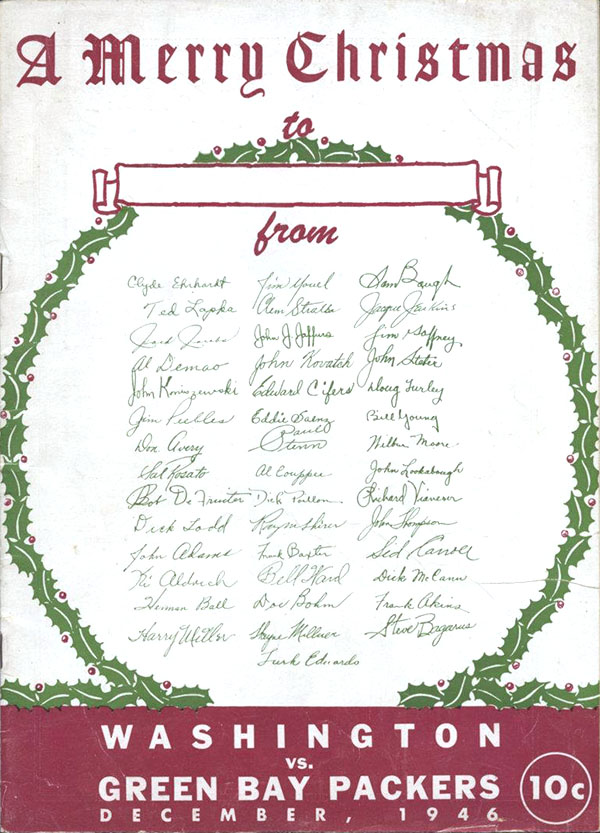 A Merry Christmas
to
from
Clyde Ehrhardt Jim Youel Sam Baugh
Ted Lapka Clem Stralka Jacque Jenkins
John J Jaffurs Jim Gaffney
Al Demao John Kovatch John Steber
John Koniszewski Edward Cifers Doug Turley
Jim Peebles Eddie Saenz Bill Young
Don Avery Paul Stenn Wilbur Moore
Sal Rosato Al Couppee John Lookabaugh
Bob De Fruiter Dick Poillon
Dick Todd Ray Monaco John Thompson
John Adams Frank Baxter Sid Carroll
Ki Aldrich Bill Ward Dick McCann
Herman Ball Doc Bohm Frank Akins
Harry Miller Wayne Millner Steve Bagarus
Turk Edwards
WASHINGTON
VS.
GREEN BAY PACKERS
10c
DECEMBER, 1946